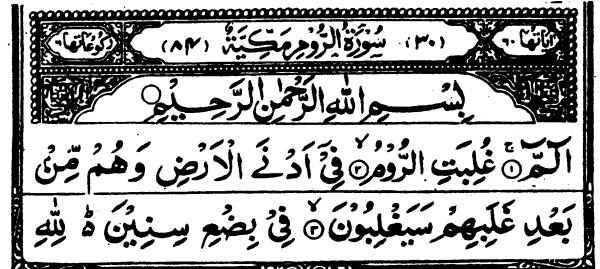 اٰیاتها ٦٠ (٣٠) سُوْرَةُ الرُّوْمِ مَكِّيَّةٌ (٨٤) ركوعاتها ٦
بِسْمِ اللهِ الرَّحْمٰنِ الرَّحِيْمِ
الٓمّٓ ۚ﴿١﴾ غُلِبَتِ الرُّوْمُ ۙ﴿٢﴾ فِيْٓ اَدْنَى الْاَرْضِ وَهُمْ مِّنْۢ
بَعْدِ غَلَبِهِمْ سَيَغْلِبُوْنَ ۙ﴿٣﴾ فِيْ بِضْعِ سِنِيْنَ ۬ؕ لِلّٰهِ